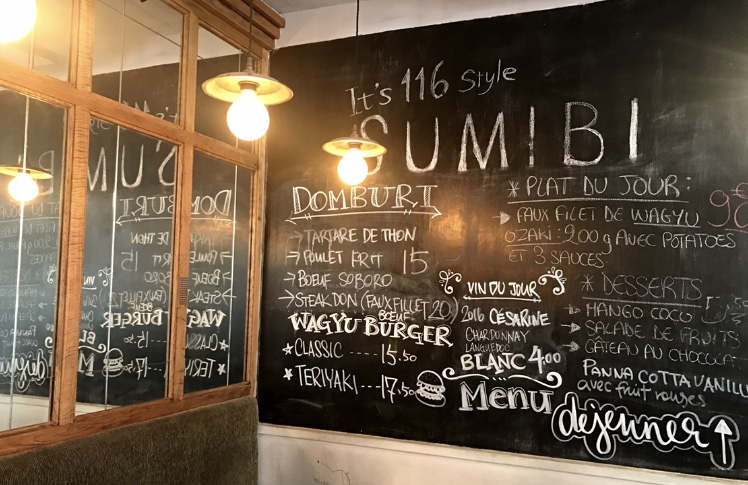 It's 116 Style
SUMIBI
DOMBURI
→ TARTARE DE THON
→ POULET FRIT 15
→ BOEUF SOBORO
→ STEAK DON (FAUX FILLET 20)
BOEUF
WAGYU BURGER
★ CLASSIC --- 15.50
★ TERIYAKI --- 17.50
VIN DU JOUR
2016 CÉSARINE
CHARDONNAY
LANGUEDOC
BLANC 4.00
Menu
déjeuner ↑
* PLAT DU JOUR:
FAUX FILET DE WAGYU
OZAKI: 200 g AVEC POTATOES
ET 3 SAUCES
* DESSERTS
MANGO COCO
SALADE DE FRUITS
GÂTEAU AU CHOCOLAT
PANNA COTTA VANILL
avec fruit rouges